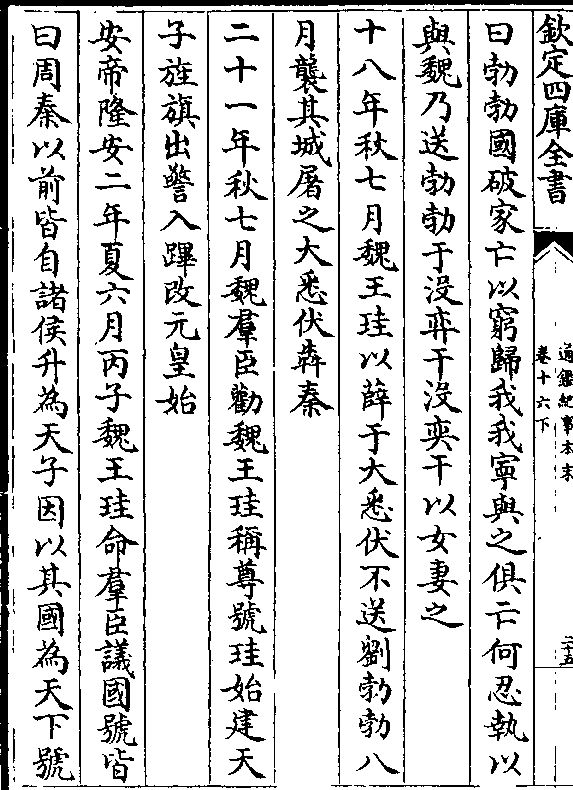 欽定四庫全書
通鑑紀事本末
卷十六下
二十五
曰勃勃國破家亡以窮歸我我寧與之俱亡何忍執以
與魏乃送勃勃于没弈干没奕干以女妻之
十八年秋七月魏王珪以薛于大悉伏不送劉勃勃八
月襲其城屠之大悉伏犇秦
二十一年秋七月魏羣臣勸魏王珪稱尊號珪始建天
子旌旗出警入蹕改元皇始
安帝隆安二年夏六月丙子魏王珪命羣臣議國號皆
曰周秦以前皆自諸侯升為天子因以其國為天下號